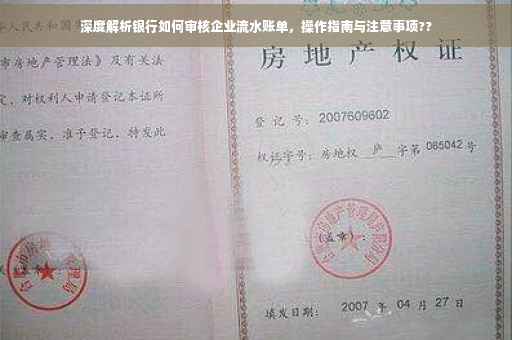 深度解析银行如何审核企业流水账单，操作指南与注意事项??
人民共和国
市房地产管理法》及有关法
定，对权利人申请登记本证所
审查属实，准予登记，特发此
房地产权证
登 记 号：2007609602
权证字号：房地权 庐 字第 085042 号
(盖章)：
填发日期：2007 年 04 月 27 日